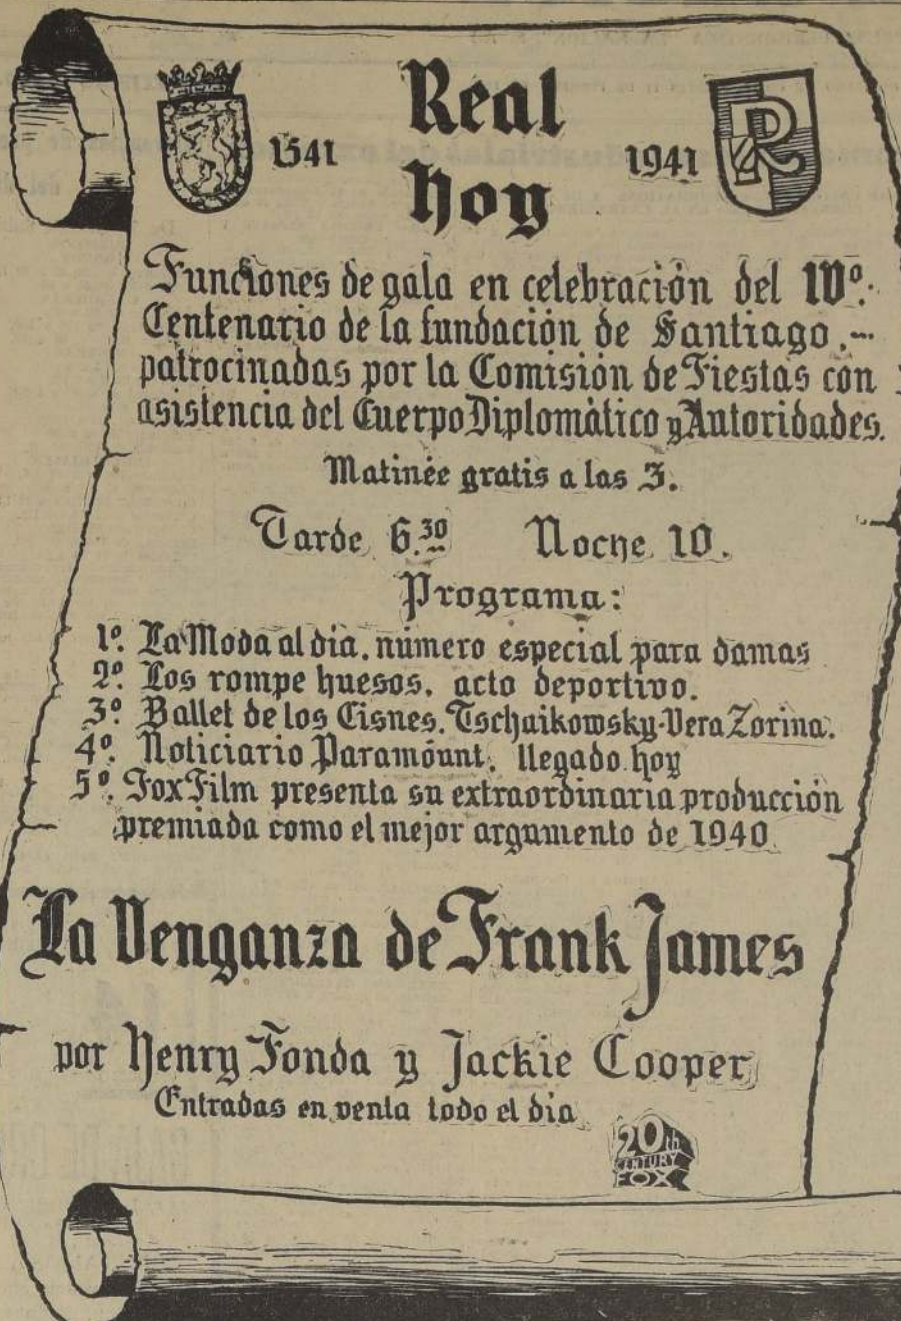 Real
1541
1941
R
hoy
Funciones de gala en celebración del IVº.
Centenario de la fundación de Santiago.--
patrocinadas por la Comisión de Fiestas con
asistencia del Cuerpo Diplomático y Autoridades.
Matinée gratis a las 3.
Tarde 6.30 Noche 10.
Programa:
1º. La Moda al dia. número especial para damas
2º. Los rompe huesos. acto deportivo.
3º. Ballet de los Cisnes. Tschaikowsky-Vera Zorina.
4º. Noticiario Paramount. llegado hoy
5º. Fox Film presenta su extraordinaria producción
premiada como el mejor argumento de 1940.
La Venganza de Frank James
por Henry Fonda y Jackie Cooper
Entradas en venta todo el dia
20th
CENTURY
FOX